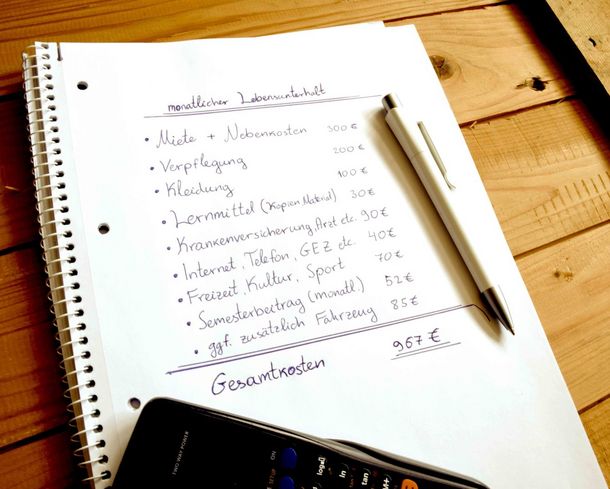 monatlicher Lebensunterhalt
• Miete + Nebenkosten 300 €
• Verpflegung 200 €
• Kleidung 100 €
• Lernmittel (Kopien Material) 30 €
• Krankenversicherung, Arzt etc. 90 €
• Internet, Telefon, GEZ etc. 40 €
• Freizeit, Kultur, Sport 70 €
• Semesterbeitrag (monatl.) 52 €
• ggf. zusätzlich Fahrzeug 85 €
Gesamtkosten 967 €
TWO WAY POWER
ON
SETUP
log
ln
tan
M+